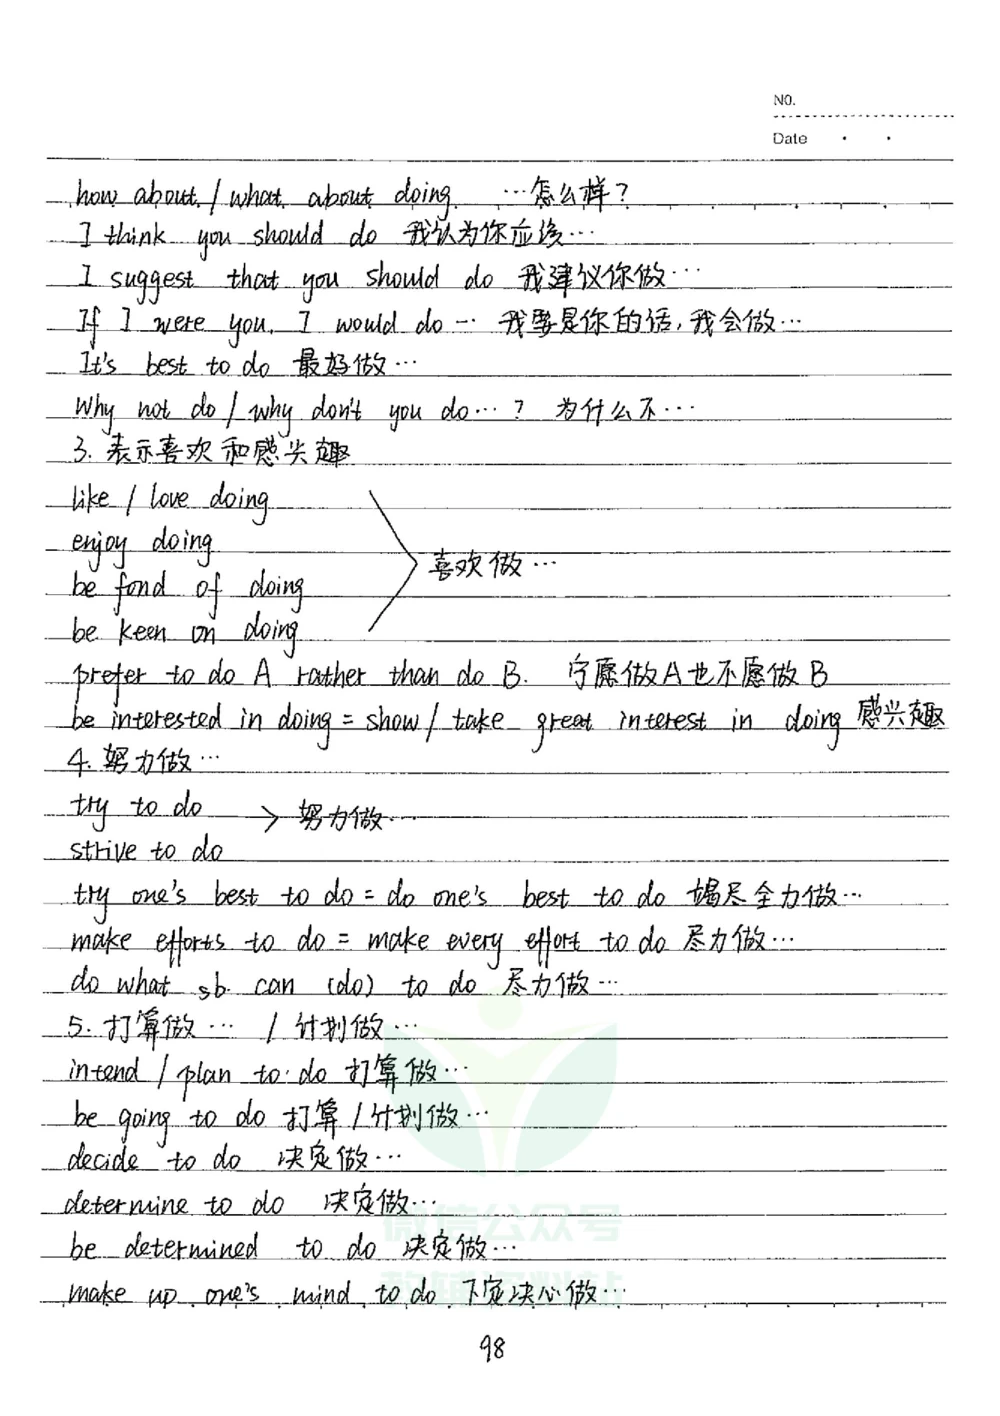 NO.
Date
how about / what about doing …怎么样?
I think you should do 我认为你应该…
I suggest that you should do 我建议你做…
If I were you, I would do … 我要是你的话,我会做…
It's best to do 最好做…
Why not do / why don't you do…? 为什么不…
3. 表示喜欢和感兴趣
like / love doing
enjoy doing
喜欢做…
be fond of doing
be keen on doing
prefer to do A rather than do B. 宁愿做A也不愿做B
be interested in doing = show / take great interest in doing 感兴趣
4. 努力做…
try to do > 努力做…
strive to do
try one's best to do = do one's best to do 竭尽全力做…
make efforts to do = make every effort to do 尽力做…
do what sb. can (do) to do 尽力做…
5. 打算做… / 计划做…
intend / plan to do 打算做…
be going to do 打算 / 计划做…
decide to do 决定做…
determine to do 决定做…
微信公众号
be determined to do 决定做…
教辅资料站
make up one's mind to do 下定决心做…
98